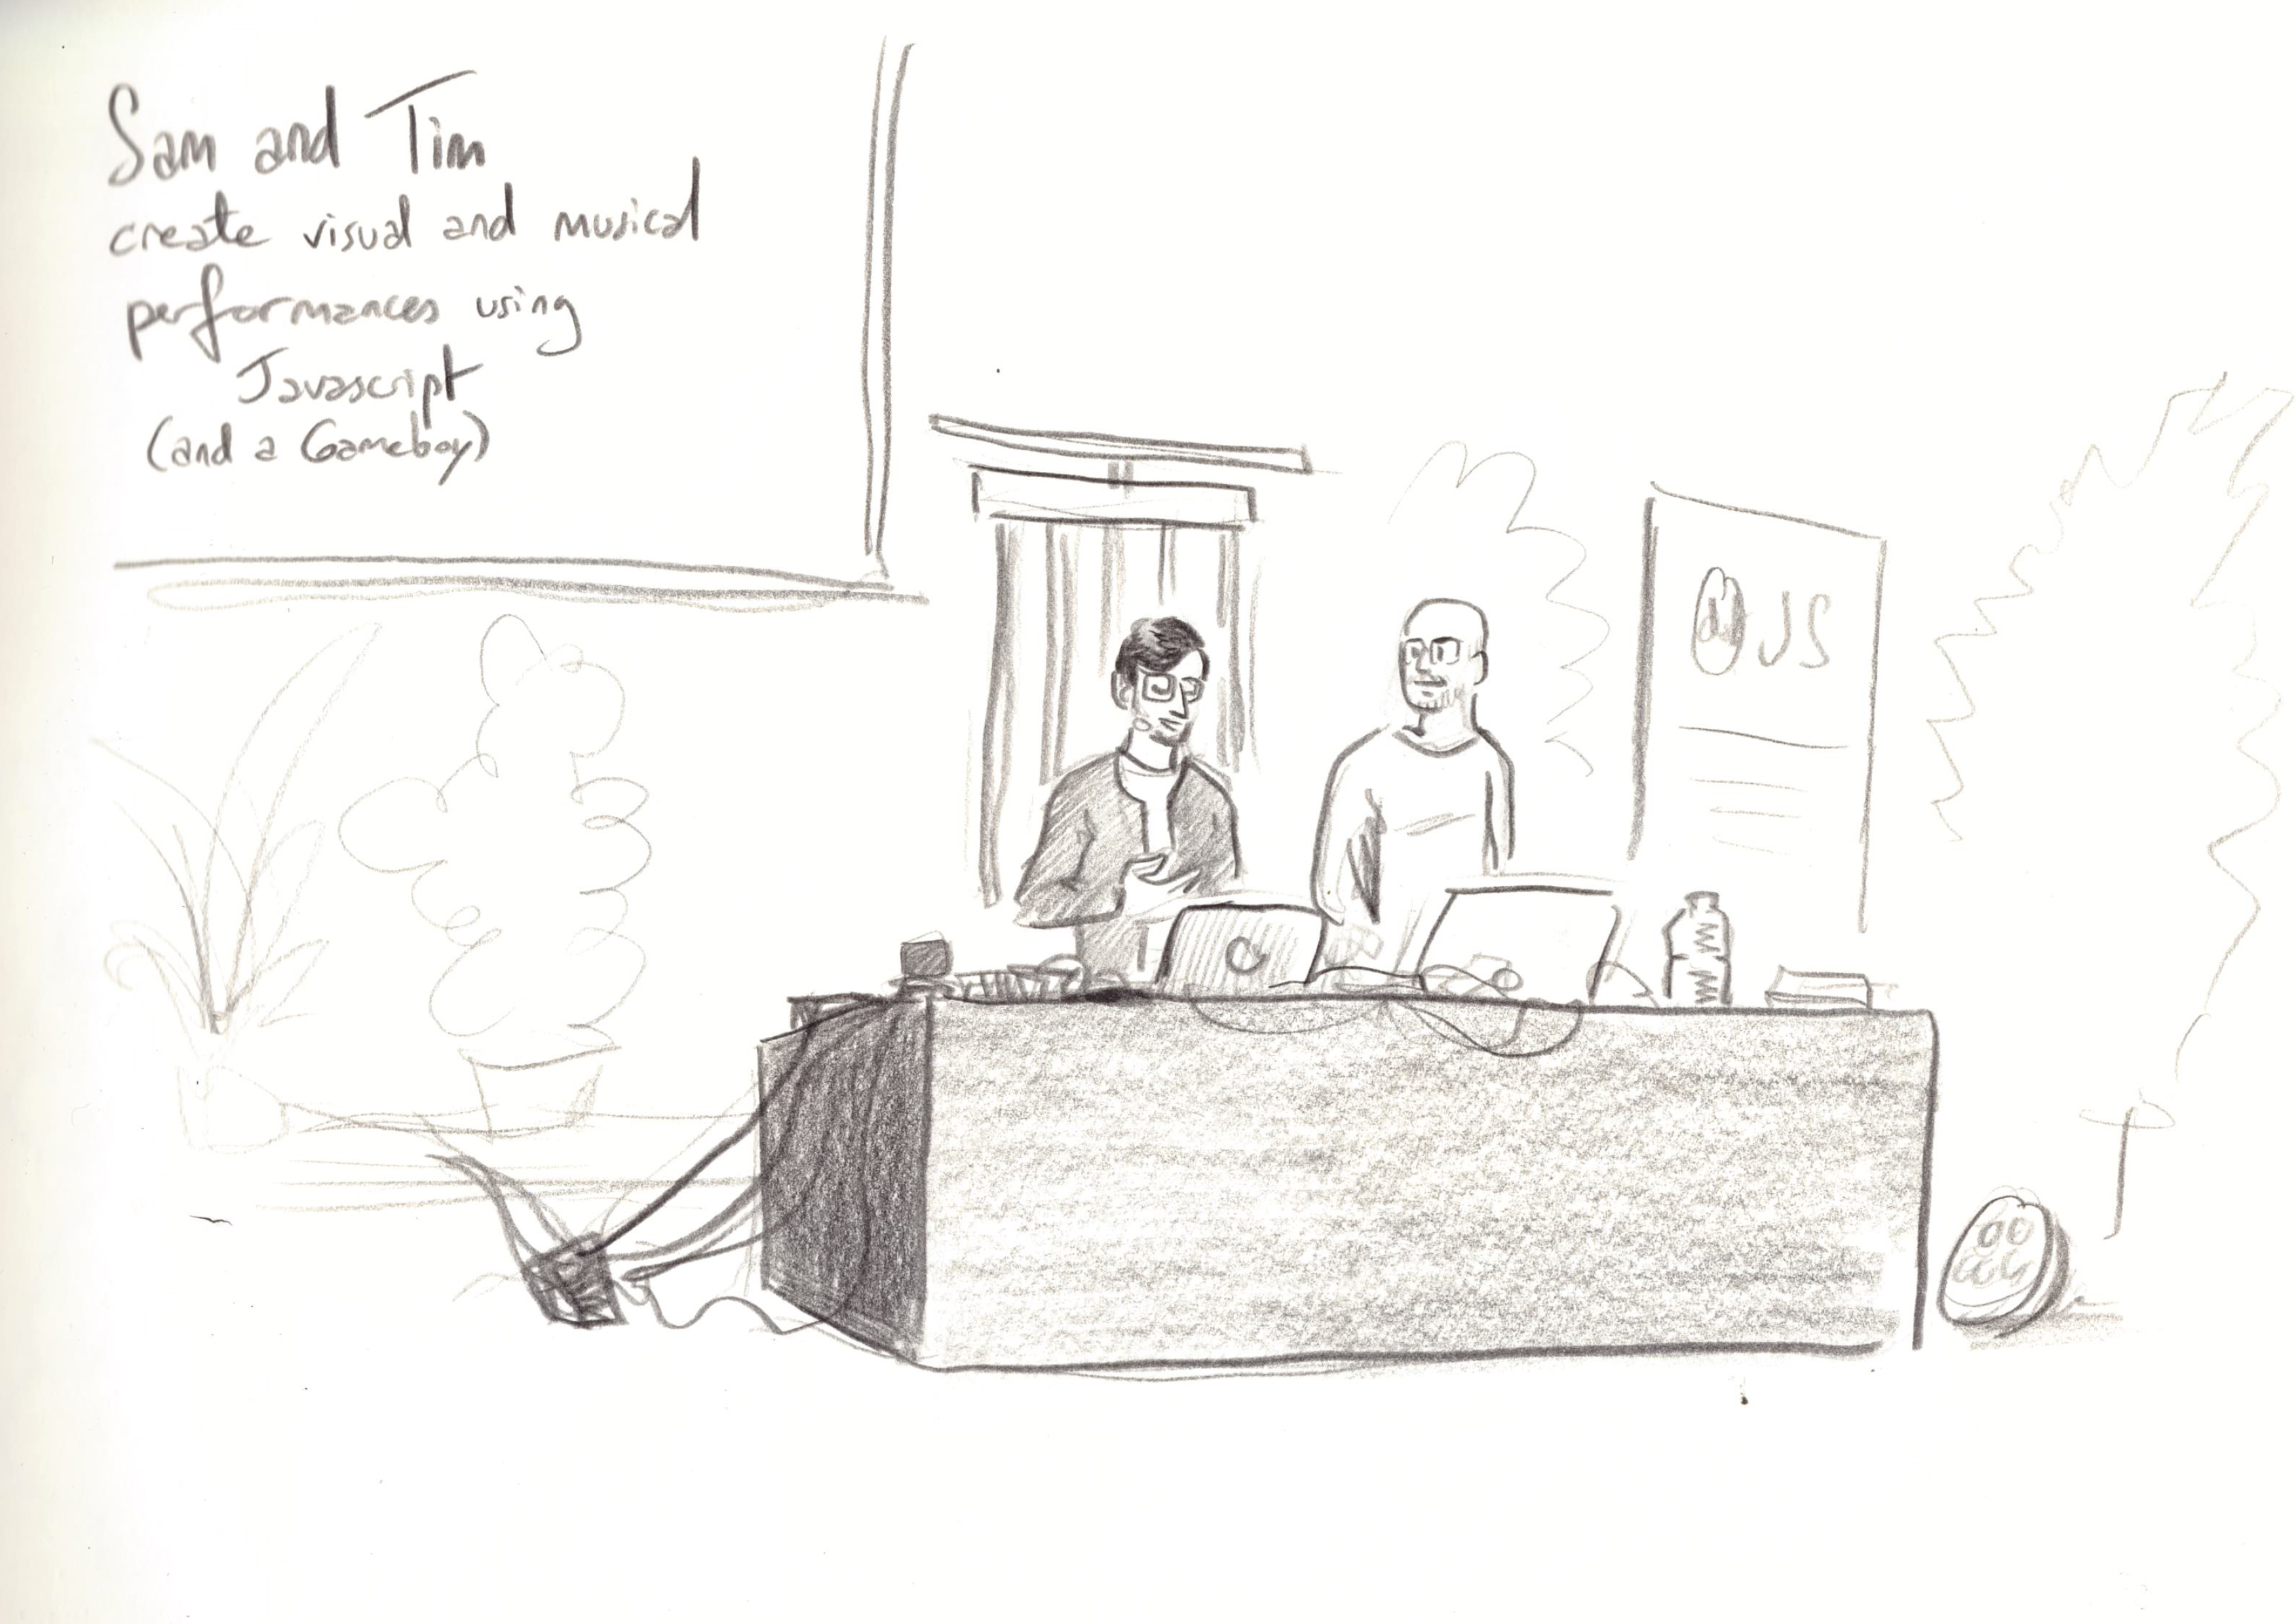 Sam and Tim
create visual and musical
performances using
Javascript
(and a Gameboy)
JS